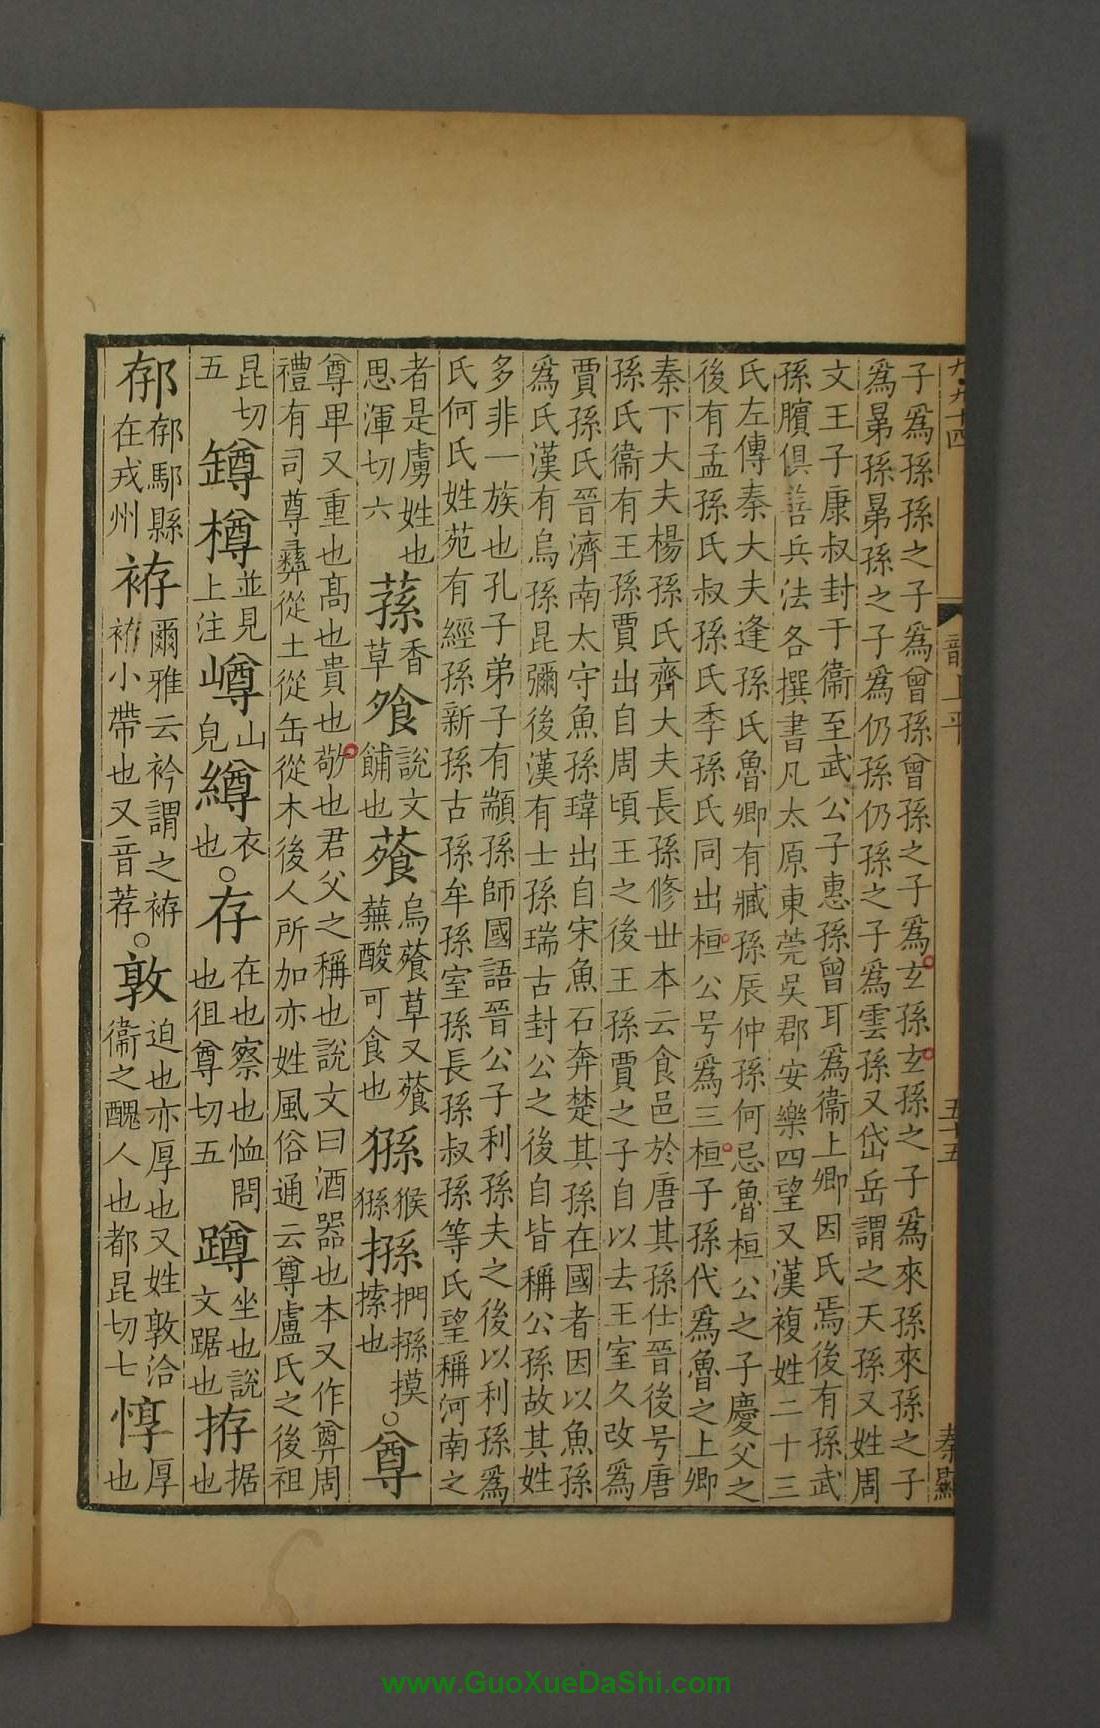 子爲孫孫之子爲曾孫曾孫之子爲玄孫玄孫之子爲來孫來孫之子
爲晜孫晜孫之子爲仍孫仍孫之子爲雲孫又岱岳謂之天孫又姓周
文王子康叔封于衞至武公子惠孫曾耳爲衞上卿因氏焉後有孫武
孫臏俱善兵法各撰書凡太原東莞吳郡安樂四望又漢複姓二十三
氏左傳秦大夫逢孫氏魯卿有臧孫辰仲孫何忌魯桓公之子慶父之
後有孟孫氏叔孫氏季孫氏同出桓公号爲三桓子孫代爲魯之上卿
秦下大夫楊孫氏齊大夫長孫修世本云食邑於唐其孫仕晉後号唐
孫氏衞有王孫賈出自周頃王之後王孫賈之子自以去王室久改爲
賈孫氏晉濟南太守魚孫瑋出自宋魚石奔楚其孫在國者因以魚孫
爲氏漢有烏孫昆彌後漢有士孫瑞古封公之後自皆稱公孫故其姓
多非一族也孔子弟子有顓孫師國語晉公子利孫夫之後以利孫爲
氏何氏姓苑有經孫新孫古孫牟孫室孫長孫叔孫等氏望稱河南之
者是虜姓也思渾切六 蓀香草 飧說文餔也 蕵烏蕵草又蕵蕪酸可食也 猻猴猻 搎捫搎摸㨞也○尊
尊卑又重也高也貴也敬也君父之稱也說文曰酒器也本又作尊周
禮有司尊彝從土從缶從木後人所加亦姓風俗通云尊盧氏之後祖
昆切五 罇 樽並見上注 嶟山皃 繜衣也○存在也察也恤問也徂尊切五 蹲坐也說文踞也 拵据也
郁鄢縣在戎州 袸爾雅云衿謂之袸袸小帶也又音荐○敦迫也亦厚也又姓敦洽衞之醜人也都昆切七 惇厚也
五十五
秦顯
www.GuoXueDaShi.com